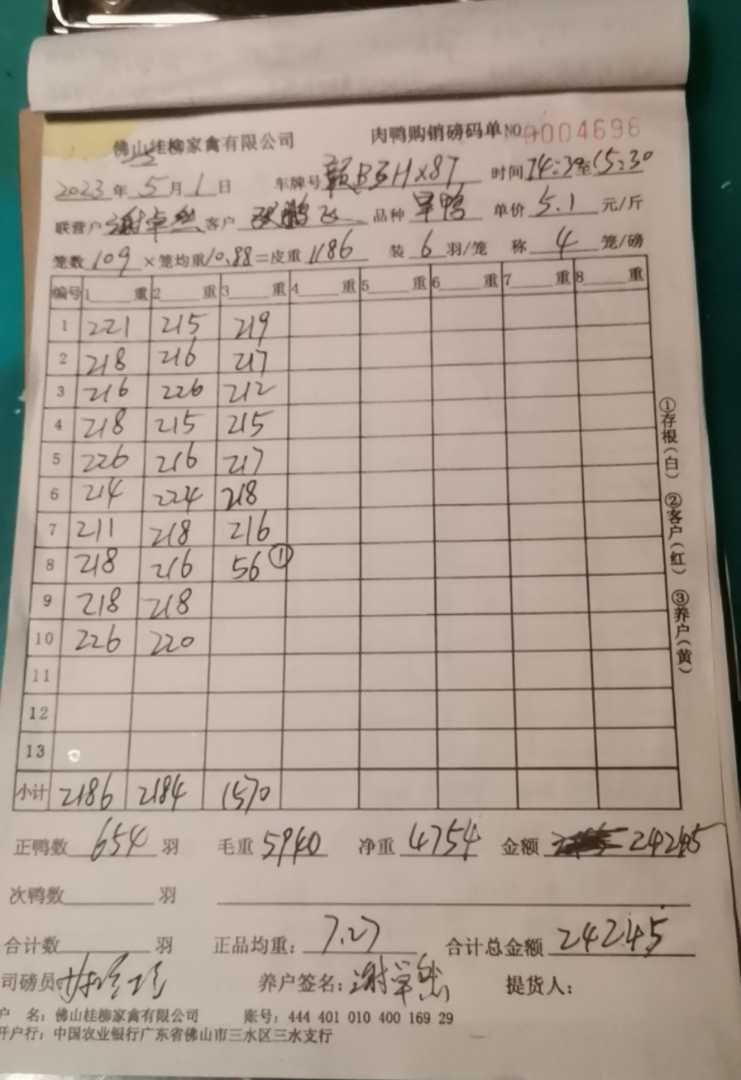 佛山桂柳家禽有限公司 肉鸭购销磅码单 NO 0004696
2023年5月1日 车牌号 赣B3H×87 时间14:39至15:30
联营户 谢卓然 客户 飞 品种 旱鸭 单价 5.1 元/斤
笼数 109 ×笼均重 10.88 =皮重 1186 装 6 羽/笼 称 4 笼/磅
编号 1 重 2 重 3 重 4 重 5 重 6 重 7 重 8 重
1 221 215 219
2 218 216 217
3 216 226 212
4 218 215 215
5 226 216 217
6 214 224 218
7 211 218 216
8 218 216 56 ①
9 218 218
10 226 220
11
12
13
小计 2186 2184 1570
①存根(白) ②客户(红) ③养户(黄)
正鸭数 654 羽 毛重 5940 净重 4754 金额 24245
次鸭数 羽
合计数 羽 正品均重: 7.27 合计总金额 24245
司磅员 养户签名: 谢卓然 提货人:
户 名: 佛山桂柳家禽有限公司 账号: 444 401 010 400 169 29
开户行: 中国农业银行广东省佛山市三水区三水支行